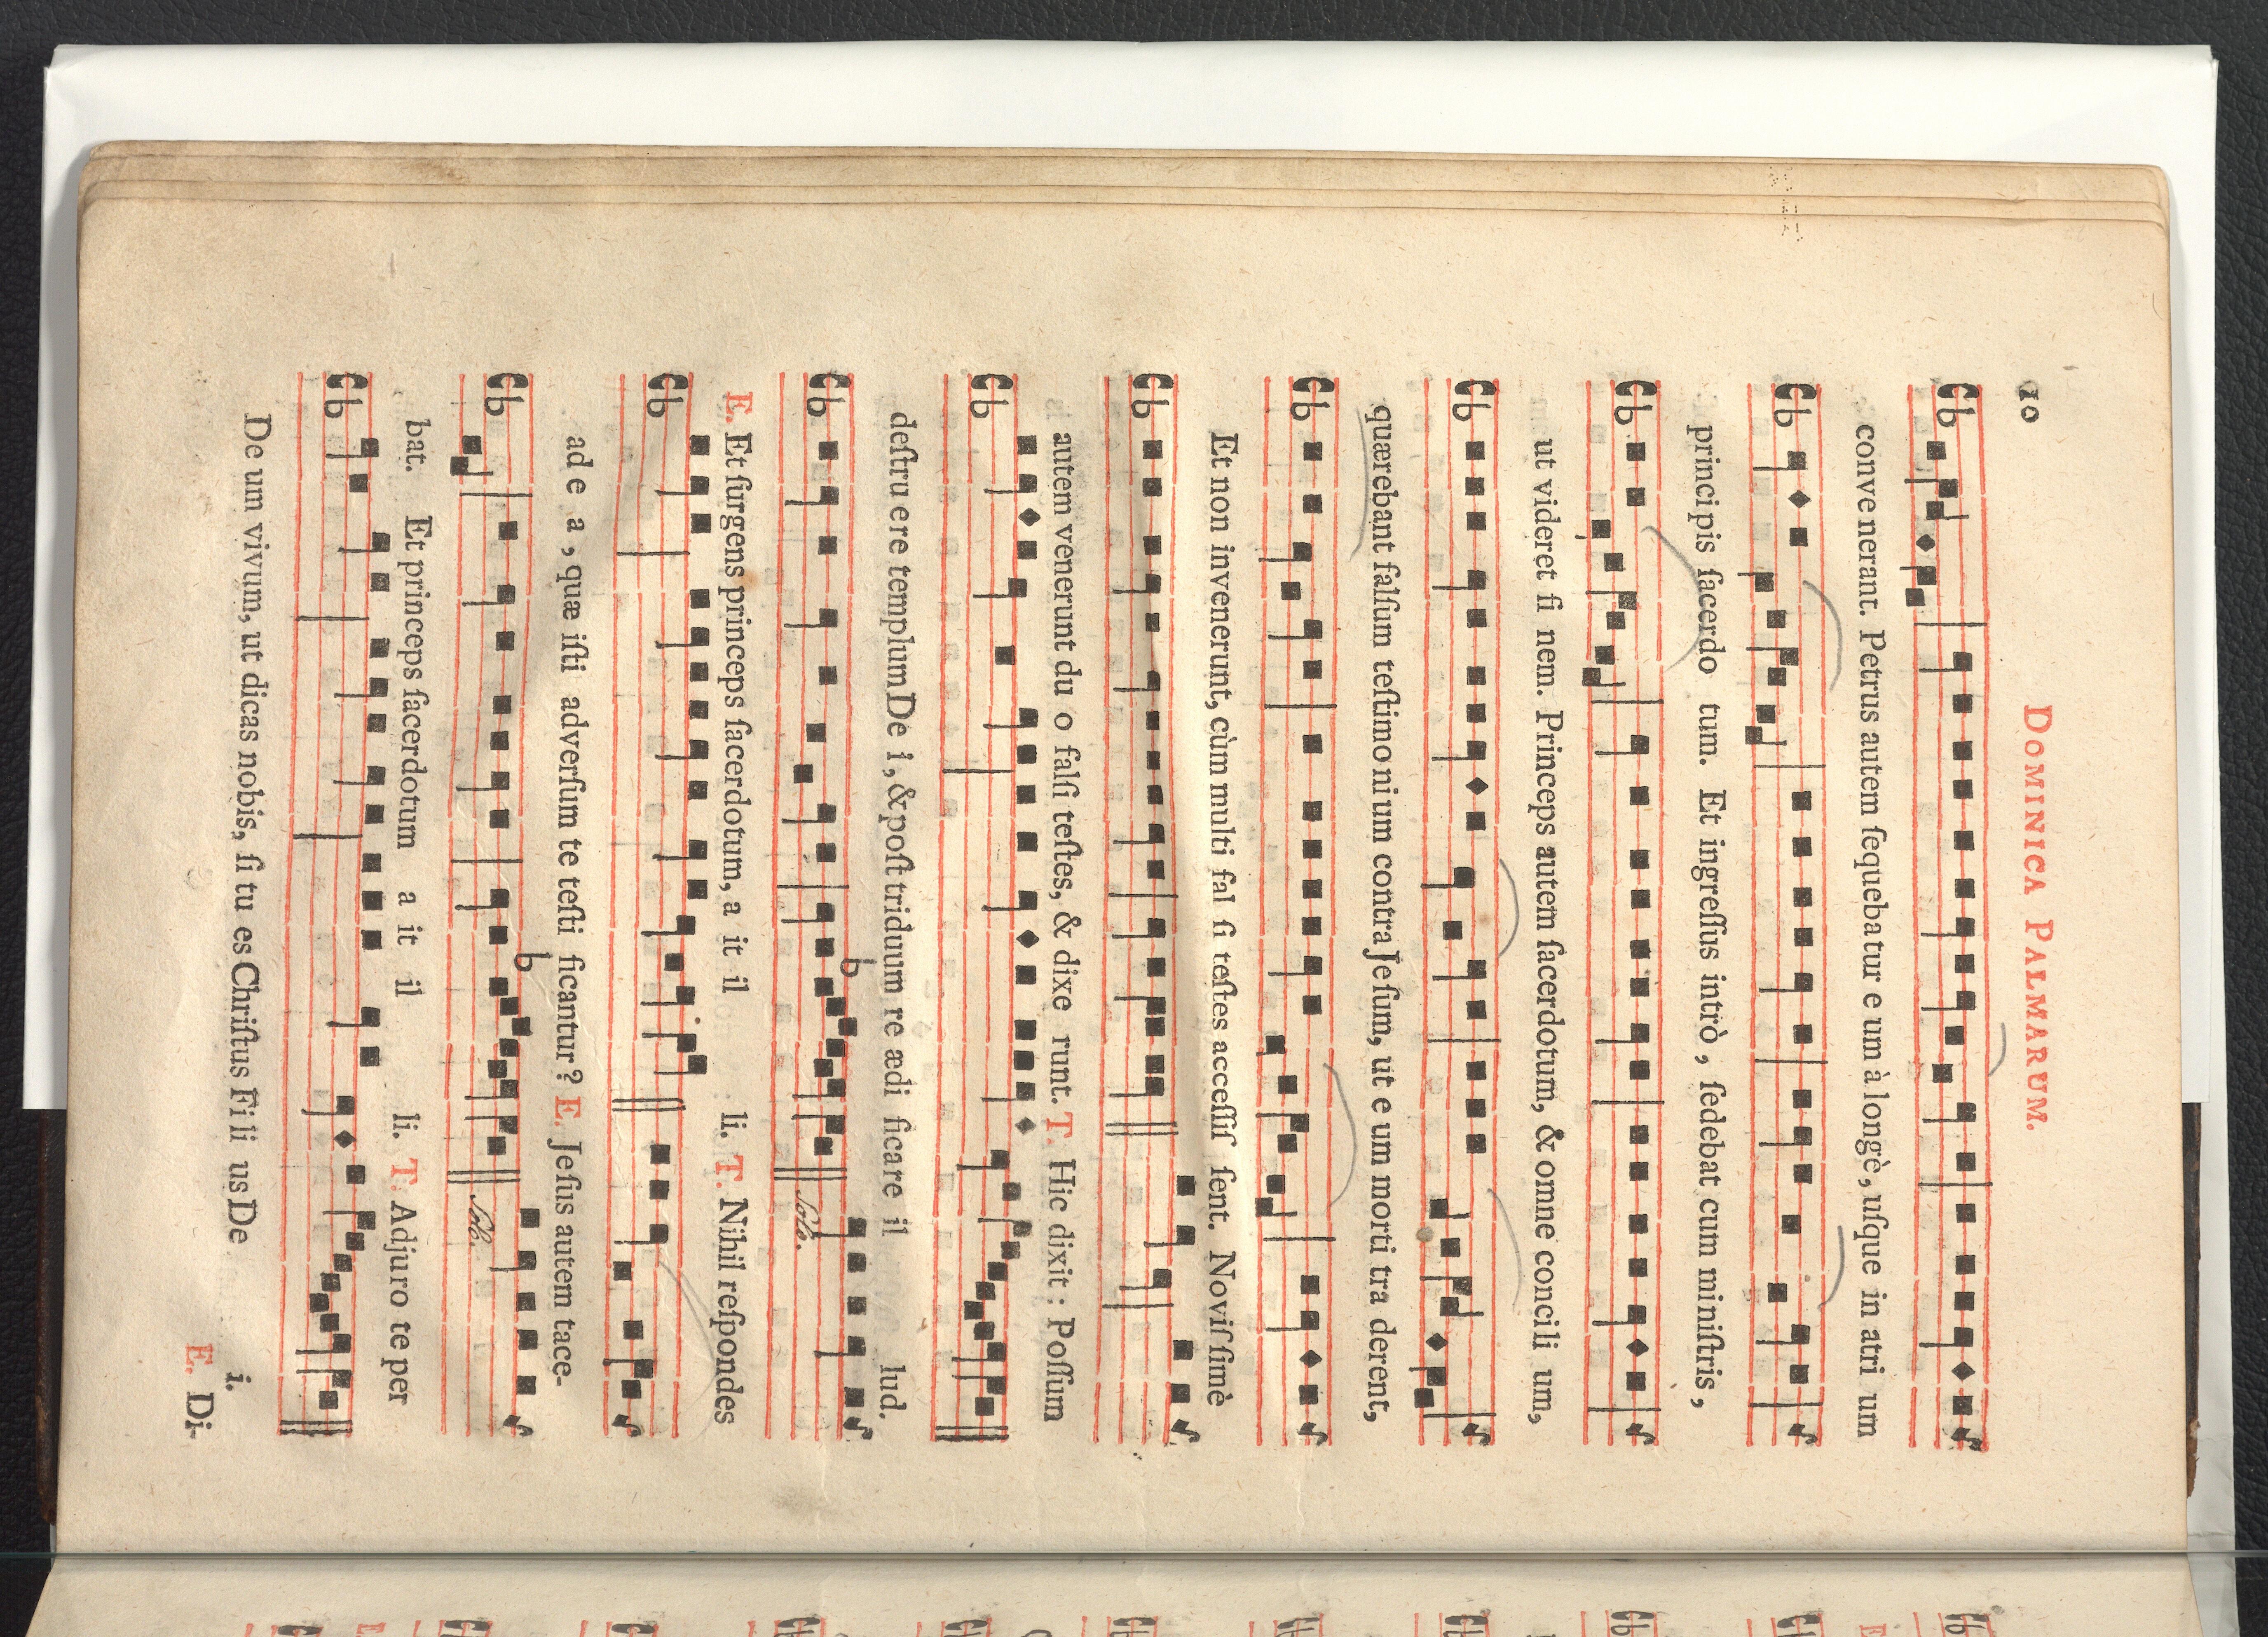 10
DOMINICA PALMARUM.
conve nerant. Petrus autem ſequebatur e um à longè, uſque in atri um
principis ſacerdo tum. Et ingreſſus intrò, ſedebat cum miniſtris,
ut videret fi nem. Princeps autem ſacerdotum, & omne concili um,
quærebant falſum teſtimo ni um contra Jeſum, ut e um morti tra derent,
Et non invenerunt, cùm multi fal ſi teſtes acceſſiſ ſent. Noviſſimè
autem venerunt du o falſi teſtes, & dixe runt. T. Hic dixit: Poſſum
deſtru e re templum De i, & poſt triduum re ædi ficare il lud.
Solo.
E. Et ſurgens princeps ſacerdotum, a it il li. T. Nihil reſpondes
ad e a, quæ iſti adverſum te teſti ficantur? E. Jeſus autem tace-
Solo.
bat. Et princeps ſacerdotum a it il li. T. Adjuro te per
De um vivum, ut dicas nobis, ſi tu es Chriſtus Fi li us De i.
E. Di-